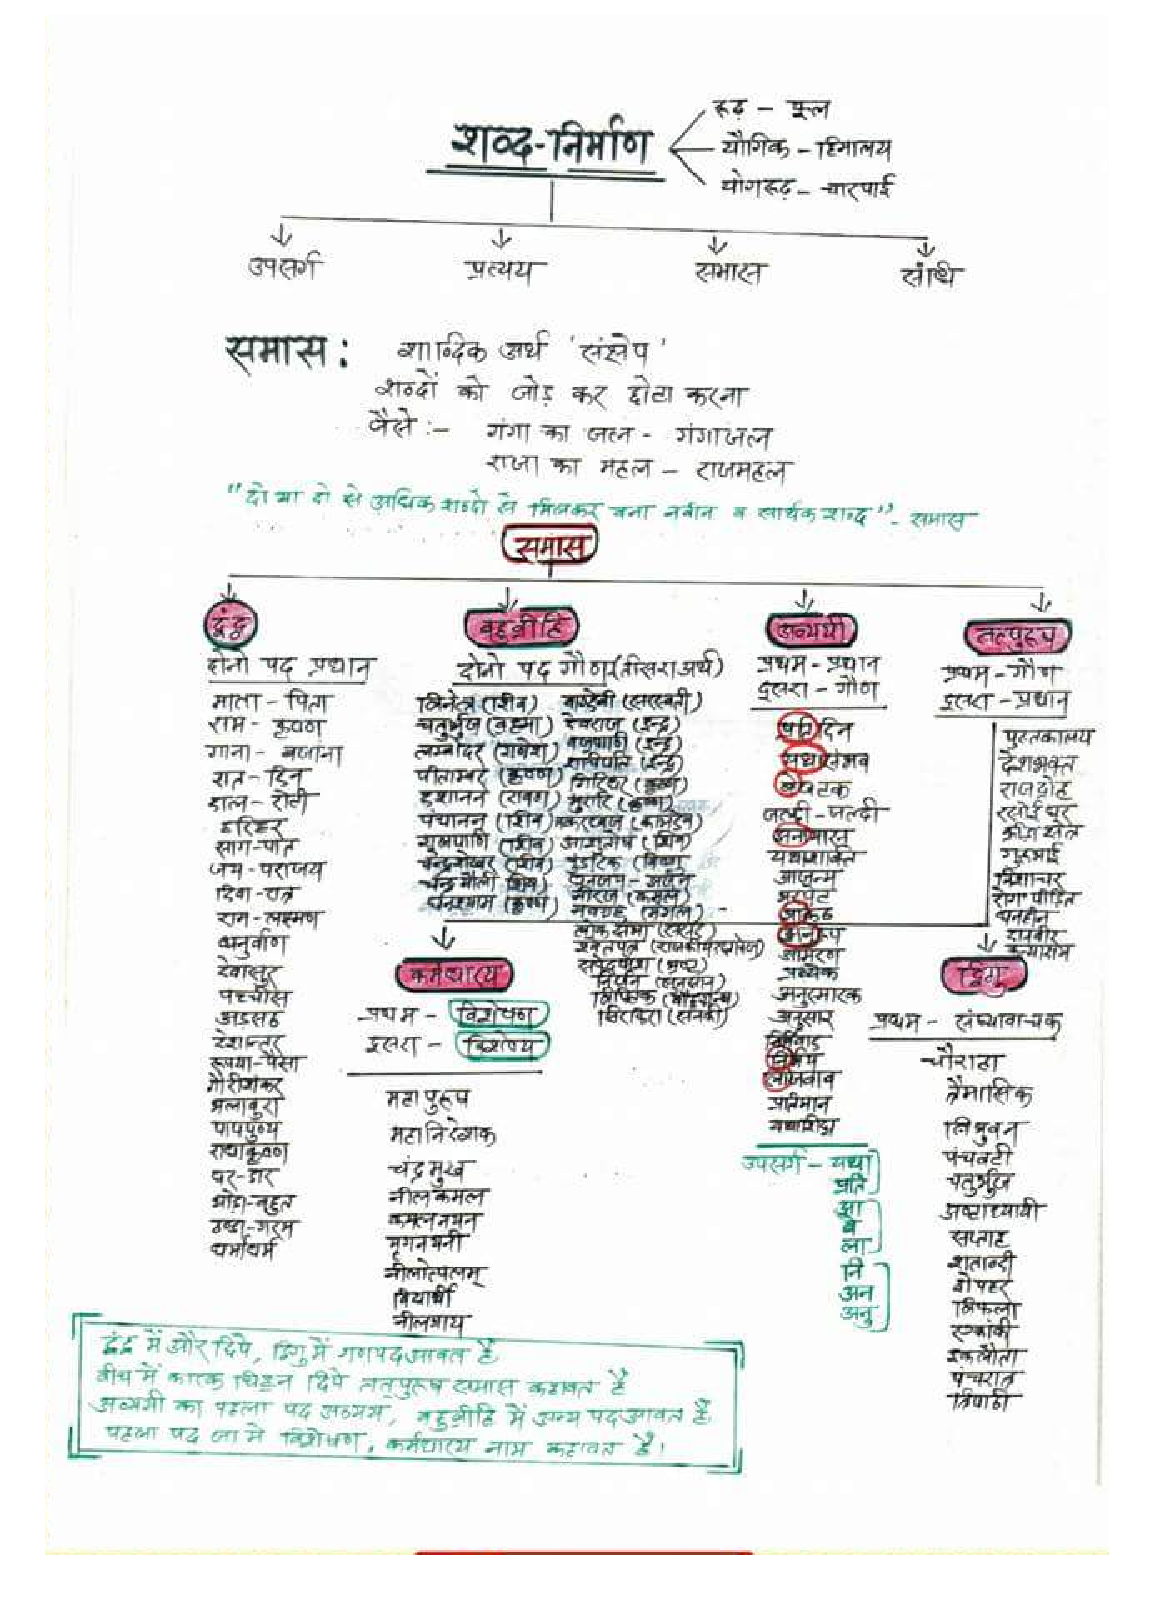 शब्द-निर्माण
रूढ़ - फूल
यौगिक - हिमालय
योगरूढ़ - चारपाई
उपसर्ग
प्रत्यय
समास
संधि
समास :
शाब्दिक अर्थ 'संक्षेप'
शब्दों को जोड़ कर छोटा करना
जैसे :- गंगा का जल - गंगाजल
राजा का महल - राजमहल
"दो या दो से अधिक शब्दो से मिलकर बना नवीन व सार्थक शब्द" - समास
समास
द्वंद्व
दोनो पद प्रधान
माता - पिता
राम - कृष्ण
गाना - बजाना
रात - दिन
दाल - रोटी
हरिहर
साग-पात
जय-पराजय
दिवा-रात्र
राम-लक्ष्मण
धनुर्बाण
देवासुर
पच्चीस
अड़सठ
देशान्तर
रूपया-पैसा
गौरीशंकर
भलाबुरा
पापपुण्य
राधाकृष्ण
घर-द्वार
थोडा-बहुत
ठण्डा-गरम
धर्माधर्म
बहुब्रीहि
दोनो पद गौण (तीसरा अर्थ)
त्रिनेत्र (शिव)
चतुर्भुज (ब्रह्मा)
लम्बोदर (गणेश)
पीताम्बर (कृष्ण)
दशानन (रावण)
पंचानन (शिव)
शूलपाणि (शिव)
चन्द्रशेखर (शिव)
चन्द्रमौली (शिव)
घनश्याम (कृष्ण)
वाग्देवी (सरस्वती)
देवराज (इन्द्र)
वज्रपाणी (इन्द्र)
शचिपति (इन्द्र)
गिरिधर (कृष्ण)
मुरारि (कृष्ण)
मकरध्वज (कामदेव)
आशुतोष (शिव)
पुंडरिक (विष्णु
धनंजय - अर्जुन
नीरज (कमल)
नवग्रह (मंगल) -
लोकसभा (संसद)
निर्जन (सुनसान)
सिरफिरा (सनकी)
अव्ययी
प्रथम - प्रधान
दूसरा - गौण
प्रतिदिन
यथासंभव
बेखटक
जल्दी - जल्दी
अनजान
यथाशक्ति
आजन्म
भरपेट
आकंठ
अनुरूप
आमरण
प्रत्येक
अनुस्मारक
अनुसार
निर्विवाद
निर्भय
लाजवाब
प्रतिमान
यथाशिघ्र
उपसर्ग - यथा
प्रति
आ
बे
ला
नि
अन
अनु
तत्पुरूष
प्रथम - गौण
दूसरा - प्रधान
पुस्तकालय
देशभक्त
राजद्रोह
रसोईघर
गुरूभाई
निशाचर
रोग पीड़ित
धनहीन
दानवीर
कर्मधारय
प्रथम - विशेषण
दूसरा - विशेष्य
महापुरूष
महानिदेशक
चंद्रमुख
नीलकमल
कमलनयन
मृगनयनी
नीलोत्पलम्
विद्यार्थी
नीलगाय
द्विगु
प्रथम - संख्यावाचक
चौराहा
त्रैमासिक
त्रिभुवन
पंचवटी
चतुर्भुज
अष्टाध्यायी
सप्ताह
शताब्दी
दोपहर
त्रिफला
एकांकी
इकलौता
पंचरात्र
त्रिपाठी
द्वंद्व में और दिपे, द्विगु में गणपद आवत है
बीच में कारक चिह्न दिपे तत्पुरूष समास कहावत है
अव्ययी का पहला पद अव्यय, बहुब्रीहि में अन्य पद आवत है,
पहला पद जा मे विशेषण, कर्मधारय नाम कहावत है।